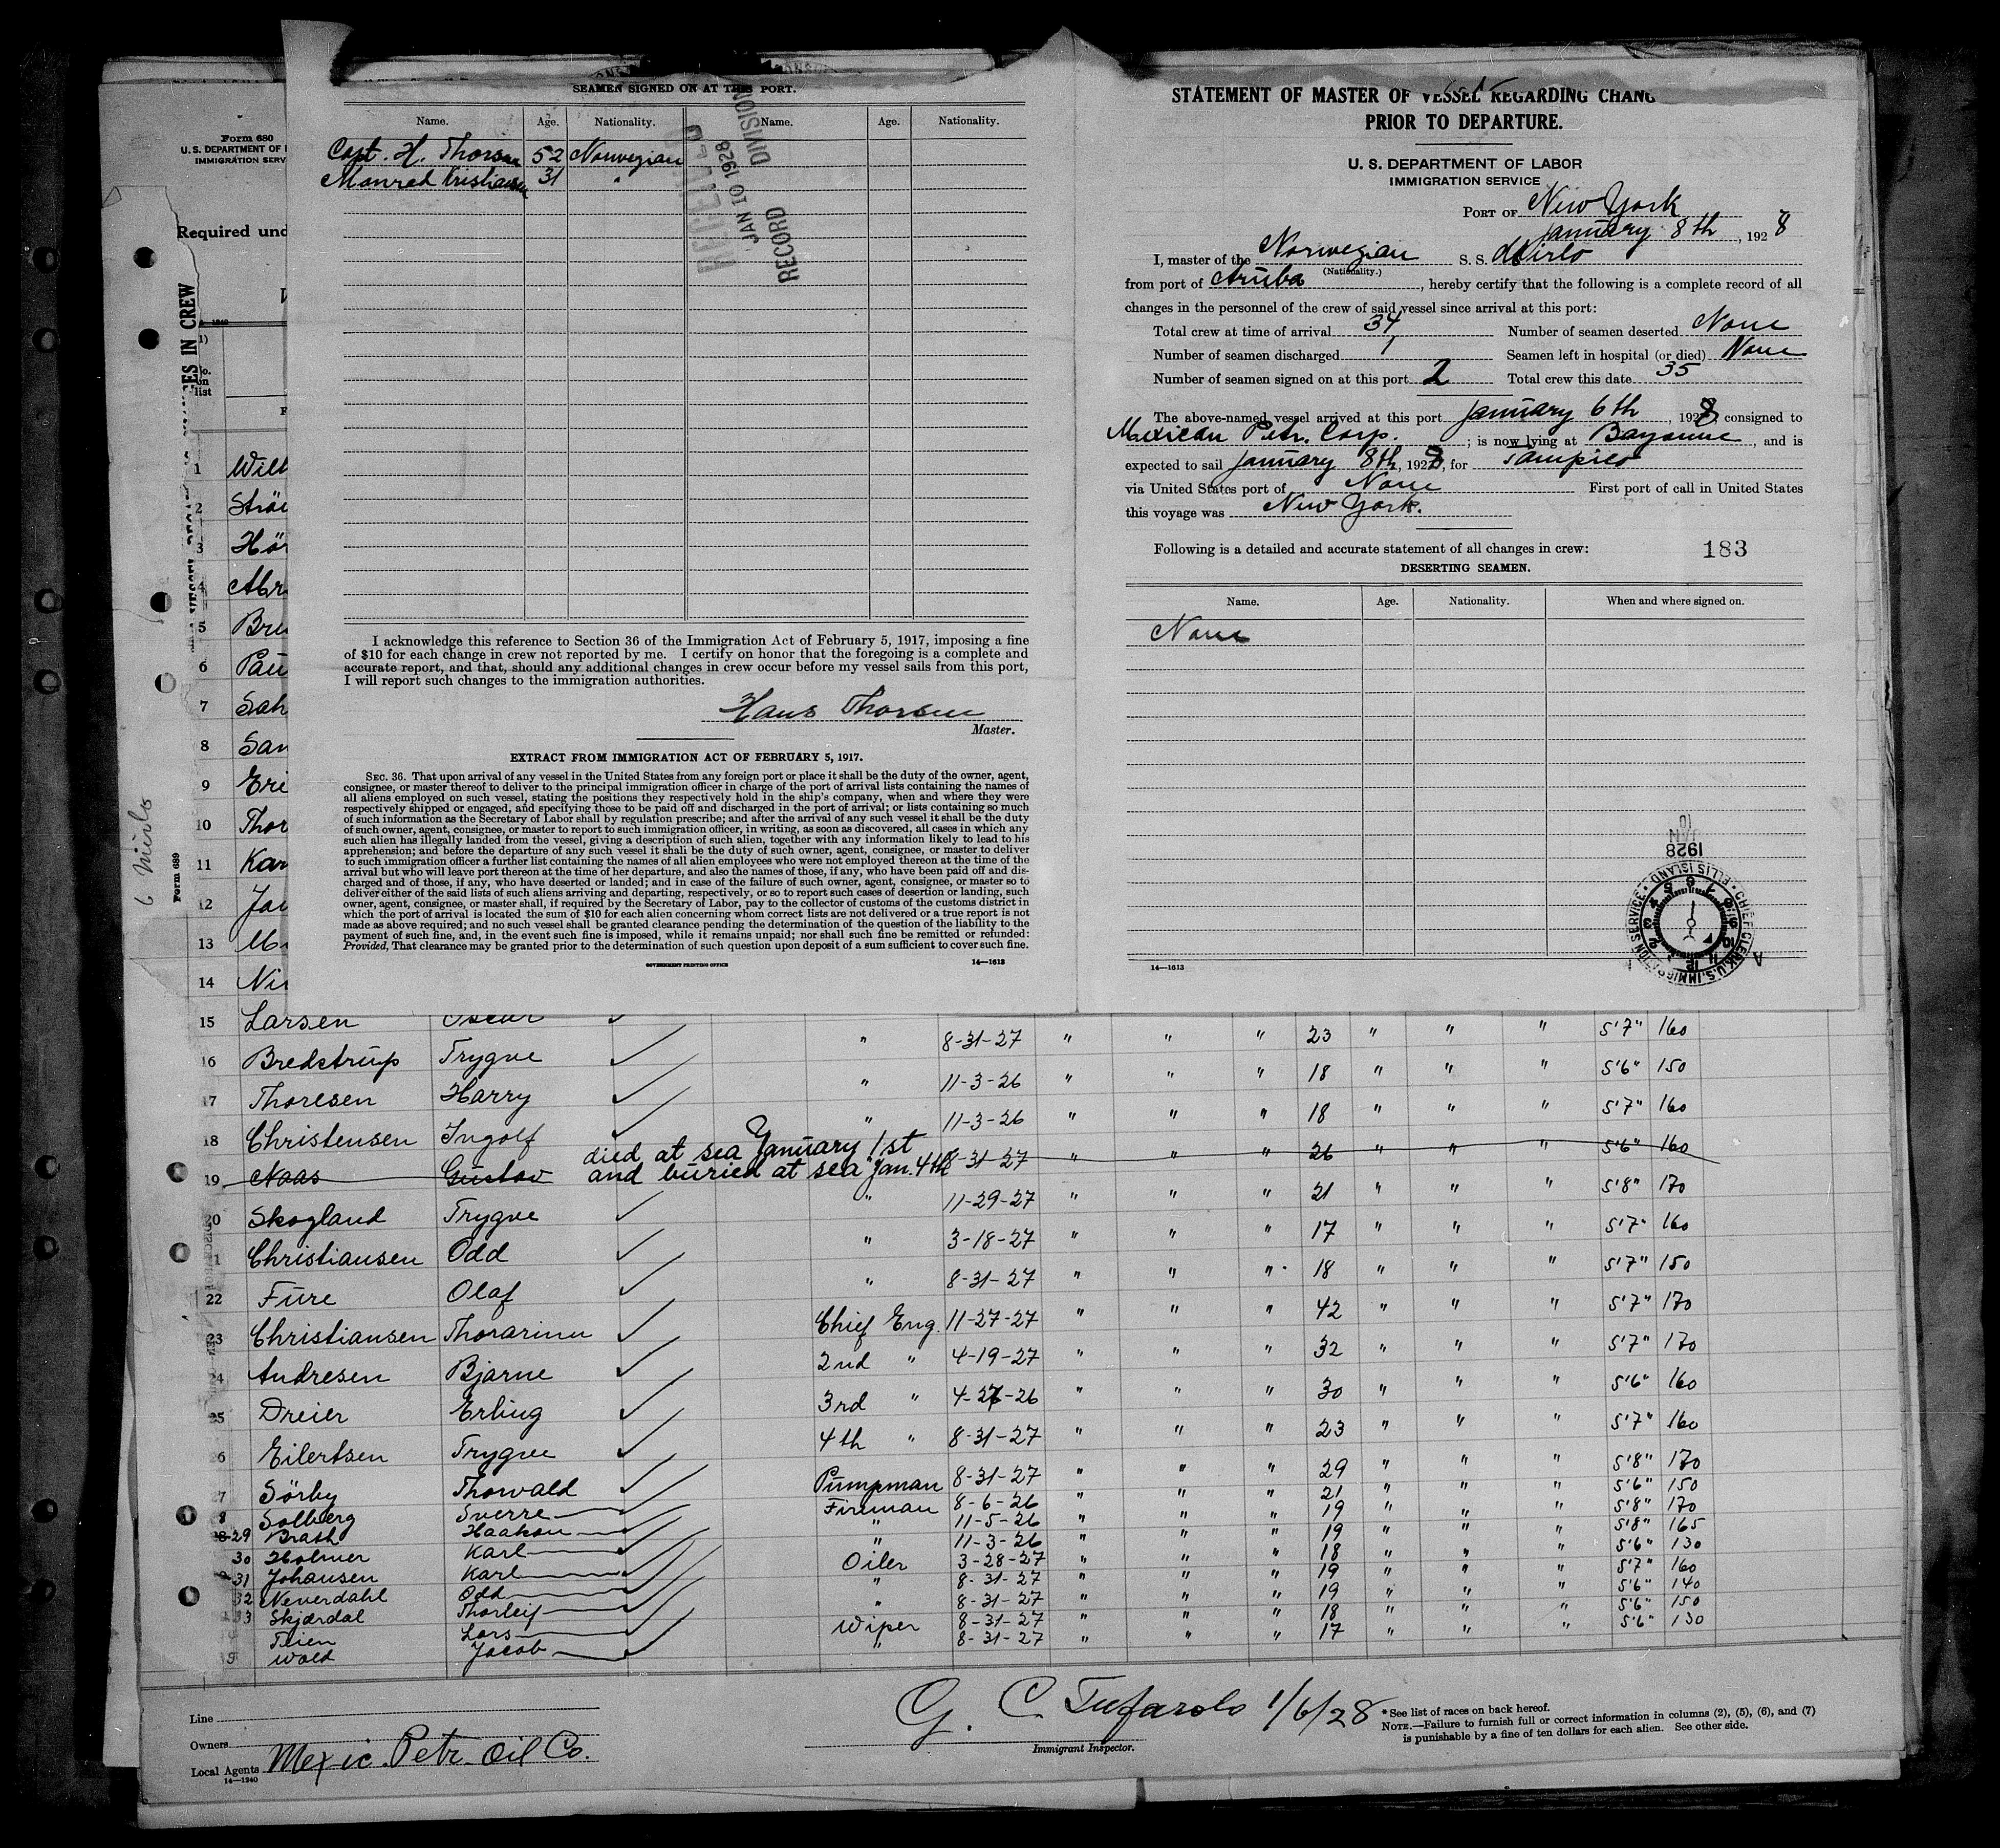 SEAMEN SIGNED ON AT THIS PORT.
Name. Age. Nationality. Name. Age. Nationality.
Capt. H. Thorsen 52 Norwegian
Monrad Kristiansen 31 "
RECEIVED
JAN 10 1928
RECORD DIVISION
I acknowledge this reference to Section 36 of the Immigration Act of February 5, 1917, imposing a fine
of $10 for each change in crew not reported by me. I certify on honor that the foregoing is a complete and
accurate report, and that, should any additional changes in crew occur before my vessel sails from this port,
I will report such changes to the immigration authorities.
Hans Thorsen
Master.
EXTRACT FROM IMMIGRATION ACT OF FEBRUARY 5, 1917.
SEC. 36. That upon arrival of any vessel in the United States from any foreign port or place it shall be the duty of the owner, agent,
consignee, or master thereof to deliver to the principal immigration officer in charge of the port of arrival lists containing the names of
all aliens employed on such vessel, stating the positions they respectively hold in the ship's company, when and where they were
respectively shipped or engaged, and specifying those to be paid off and discharged in the port of arrival; or lists containing so much
of such information as the Secretary of Labor shall by regulation prescribe; and after the arrival of any such vessel it shall be the duty
of such owner, agent, consignee, or master to report to such immigration officer, in writing, as soon as discovered, all cases in which any
such alien has illegally landed from the vessel, giving a description of such alien, together with any information likely to lead to his
apprehension; and before the departure of any such vessel it shall be the duty of such owner, agent, consignee, or master to deliver
to such immigration officer a further list containing the names of all alien employees who were not employed thereon at the time of the
arrival but who will leave port thereon at the time of her departure, and also the names of those, if any, who have been paid off and dis-
charged and of those, if any, who have deserted or landed; and in case of the failure of such owner, agent, consignee, or master so to
deliver either of the said lists of such aliens arriving and departing, respectively, or so to report such cases of desertion or landing, such
owner, agent, consignee, or master shall, if required by the Secretary of Labor, pay to the collector of customs of the customs district in
which the port of arrival is located the sum of $10 for each alien concerning whom correct lists are not delivered or a true report is not
made as above required; and no such vessel shall be granted clearance pending the determination of the question of the liability to the
payment of such fine, and, in the event such fine is imposed, while it remains unpaid; nor shall such fine be remitted or refunded:
Provided, That clearance may be granted prior to the determination of such question upon deposit of a sum sufficient to cover such fine.
GOVERNMENT PRINTING OFFICE 14—1613
STATEMENT OF MASTER OF VESSEL REGARDING CHANG
PRIOR TO DEPARTURE.
U. S. DEPARTMENT OF LABOR
IMMIGRATION SERVICE
PORT OF New York
January 8th, 1928
I, master of the Norwegian S. S. Mirlo
(Nationality.)
from port of Aruba, hereby certify that the following is a complete record of all
changes in the personnel of the crew of said vessel since arrival at this port:
Total crew at time of arrival 34 Number of seamen deserted None
Number of seamen discharged 1 Seamen left in hospital (or died) None
Number of seamen signed on at this port 2 Total crew this date 35
The above-named vessel arrived at this port January 6th, 1928, consigned to
Mexican Petr. Corp.; is now lying at Bayonne, and is
expected to sail January 8th, 1928, for Tampico
via United States port of None First port of call in United States
this voyage was New York.
Following is a detailed and accurate statement of all changes in crew: 183
DESERTING SEAMEN.
Name. Age. Nationality. When and where signed on.
None
JAN 10 1928
CHIEF CLERK, U.S. IMMIGRATION SERVICE ELLIS ISLAND
14—1613
Form 680
U. S. DEPARTMENT OF
IMMIGRATION SERV
Required und
6 Mirlo
Form 689
1 Wilh
2 Strö
3 Hör
4 Abr
5 Bre
6 Pau
7 Sah
8 San
9 Eri
10 Thor
11 Kar
12 Jo
13 M
14 Ni
15 Larsen Oscar " 8-31-27 " " " 23 " " " 5'7" 160
16 Bredstrup Trygve " 11-3-26 " " " 18 " " " 5'6" 150
17 Thoresen Harry " 11-3-26 " " " 18 " " " 5'7" 160
18 Christensen Ingolf
died at sea January 1st
19 Naas Gustav and buried at sea Jan. 4th 8-31-27 " " " 26 " " " 5'6" 160
20 Skogland Trygve " 11-29-27 " " " 21 " " " 5'8" 170
1 Christiansen Odd " 3-18-27 " " " 17 " " " 5'7" 160
22 Fure Olaf " 8-31-27 " " " 18 " " " 5'7" 150
23 Christiansen Thorarinn Chief Eng. 11-27-27 " " " 42 " " " 5'7" 170
24 Andresen Bjarne 2nd " 4-19-27 " " " 32 " " " 5'7" 170
25 Dreier Erling 3rd " 4-26-26 " " " 30 " " " 5'6" 160
26 Eilertsen Trygve 4th " 8-31-27 " " " 23 " " " 5'7" 160
27 Sörby Thorvald Pumpman 8-31-27 " " " 29 " " " 5'8" 170
8 Solberg Sverre Fireman 8-6-26 " " " 21 " " " 5'6" 150
29 Brath Haakon " 11-5-26 " " " 19 " " " 5'8" 170
30 Holmer Karl " 11-3-26 " " " 19 " " " 5'8" 165
31 Johansen Karl Oiler 3-28-27 " " " 18 " " " 5'6" 130
32 Neverdahl Odd " 8-31-27 " " " 19 " " " 5'7" 160
33 Skjærdal Thorleif " 8-31-27 " " " 19 " " " 5'6" 140
Teien Lars Wiper 8-31-27 " " " 18 " " " 5'6" 150
Wold Jacob " 8-31-27 " " " 17 " " " 5'6" 130
Line
Owners
Local Agents Mexic. Petr. Oil Co.
14—1240
G. C. Tufarolo 1/6/28
Immigrant Inspector.
* See list of races on back hereof.
NOTE.—Failure to furnish full or correct information in columns (2), (5), (6), and (7)
is punishable by a fine of ten dollars for each alien. See other side.